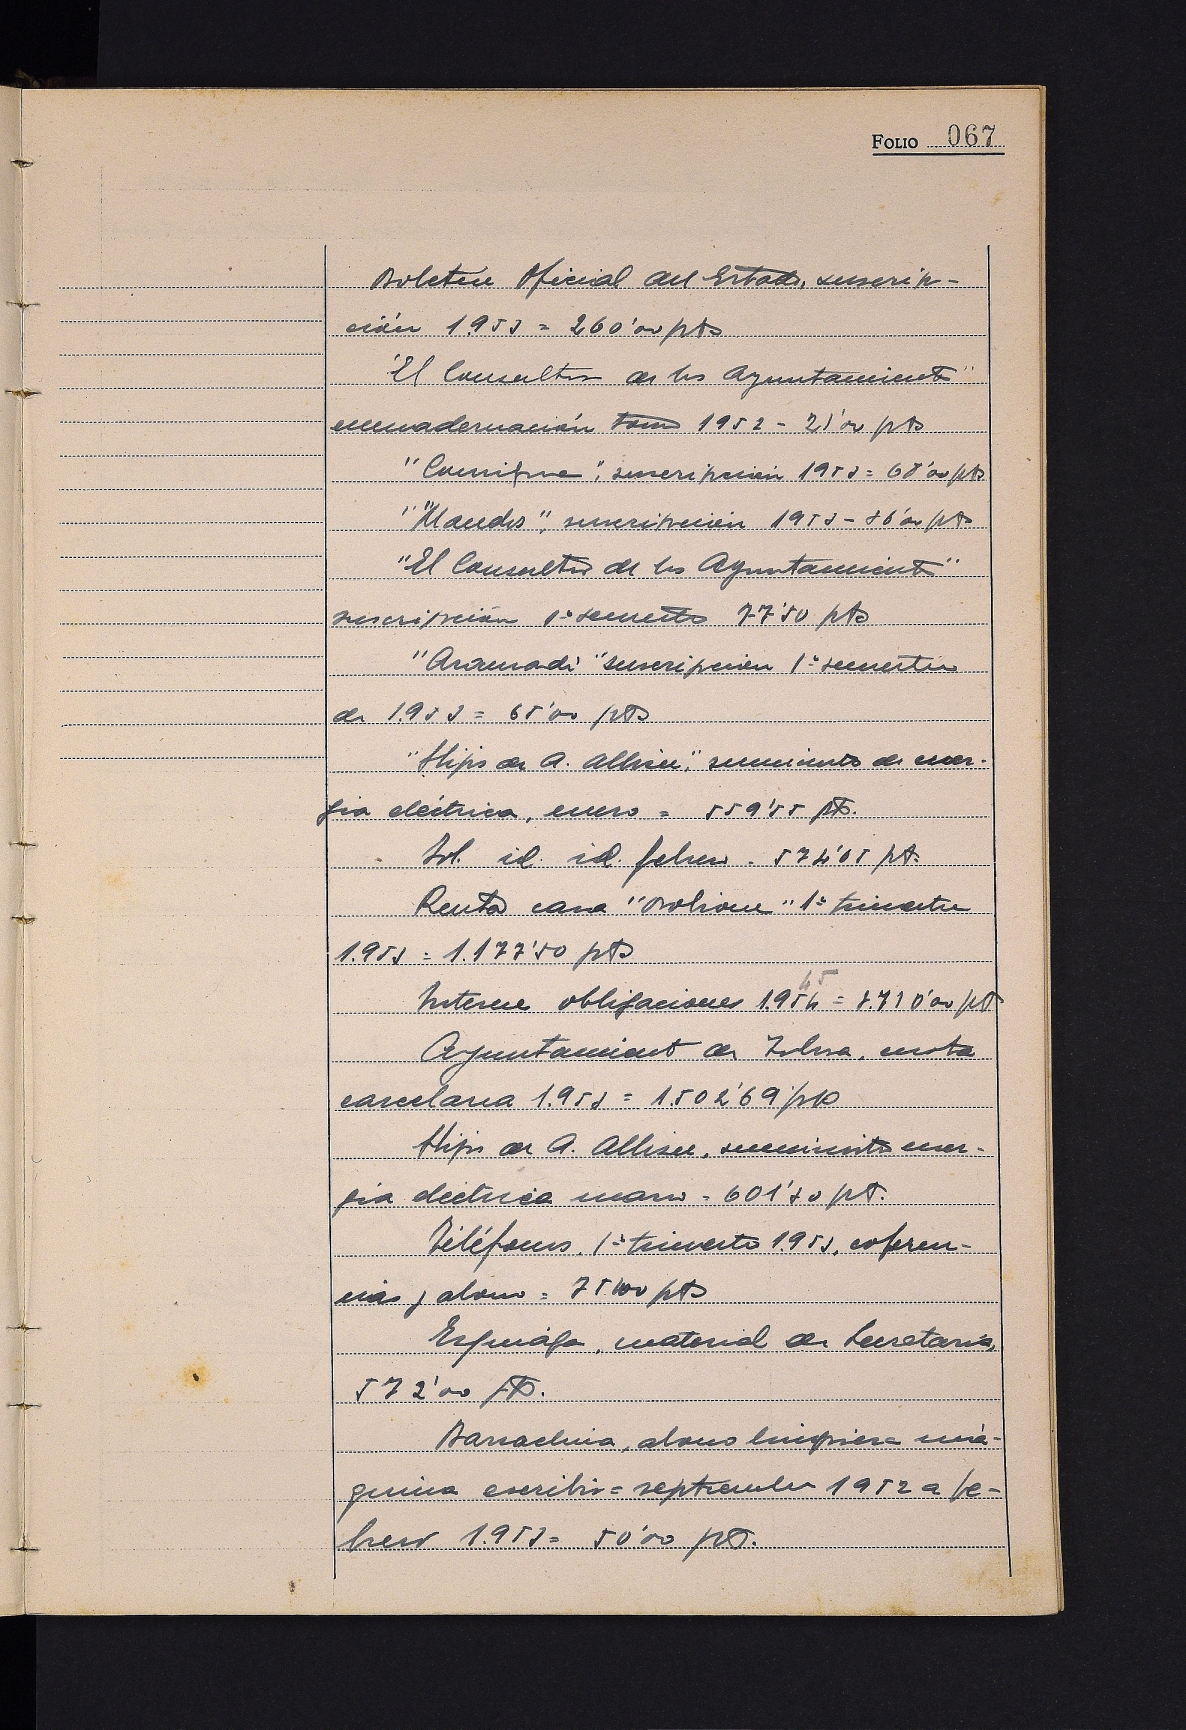 FOLIO 067
Boletin Oficial del Estado, suscrip-
ción 1953 = 260'00 pts
"El Consultor de los Ayuntamientos"
encuadernación tomo 1952 - 21'00 pts
suscripción 1953 = 68'00 pts
suscripción 1953 - 86'00 pts
"El Consultor de los Ayuntamientos"
suscripción 1º semestre 77'50 pts
"Aranzadi" suscripcion 1º semestre
de 1.953 = 65'00 pts
"Hijos de A. Allisu", suministro de ener-
gia eléctrica, enero = 559'55 pts.
Id. id. id. febrero - 574'05 pts.
Renta casa 1º trimestre
1.953 = 1.177'50 pts
Interese obligaciones 1.954 45 = pts
Ayuntamiento de Tolosa, cuota
carcelaria 1.953 = 1.502'69 pts
Hijos de A. Allisu, suministro ener-
gia eléctrica marzo = 601'80 pts.
Teléfonos, 1º trimestre 1.953, coferen-
cias y abono = pts
Espuiáfa, material de Secretaria,
572'00 pts.
Barrachina, abono limpieza má-
quina escribir = septiembre 1952 a fe-
brero 1.953 = 50'00 pts.